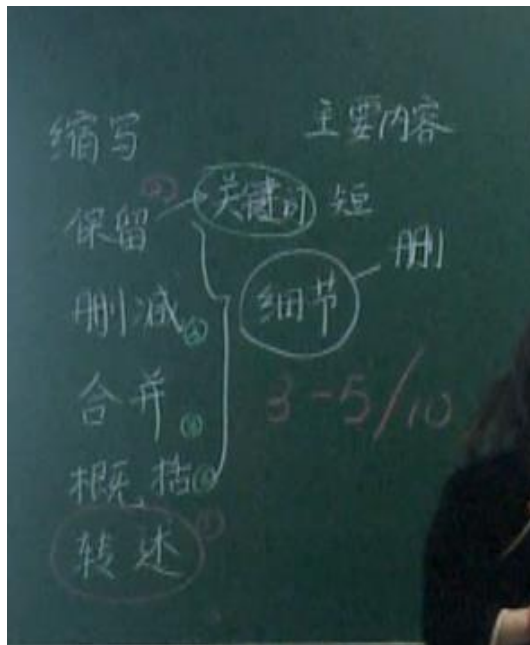 缩写 主要内容
保留 关键词 短
删
删减 细节
合并 3-5/10
概括
转述